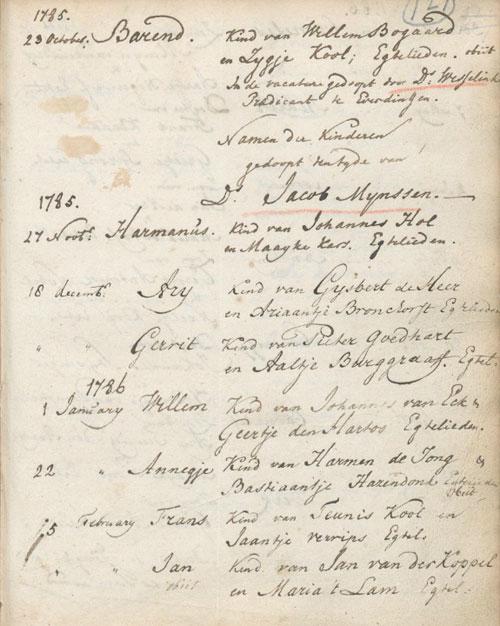 1785.
23 Octobr. Barend. Kind van Willem Bogaard
en Zygje Kool; Egtelieden. obiit
In de vacature gedoopt door Ds. Wesselink
Predicant te Everdingen.
Namen der Kinderen
gedoopt ten tyde van
Ds. Jacob Mynssen.
1785.
27 Novbr. Harmanus. Kind van Johannes Hol
en Maayke Kers. Egtelieden.
18 decembr. Ary Kind van Gysbert de Heer
en Ariaantje Bronckorst Egtelieden
" " Gerrit Kind van Pieter Goedhart
en Aaltje Burggraaff. Egtel.
1786
1 January Willem Kind van Johannes van Eck &
Geertje den Hartog Egtelieden.
22 " Annegje Kind van Harmen de Jong &
Bastiaantje Hazendonk Egtelieden
obiit
15 February Frans Kind van Teunis Kool en
Jaantje verrips Egtel.
" " Jan Kind van Jan van der Koppel
obiit en Maria 't Lam Egtel.